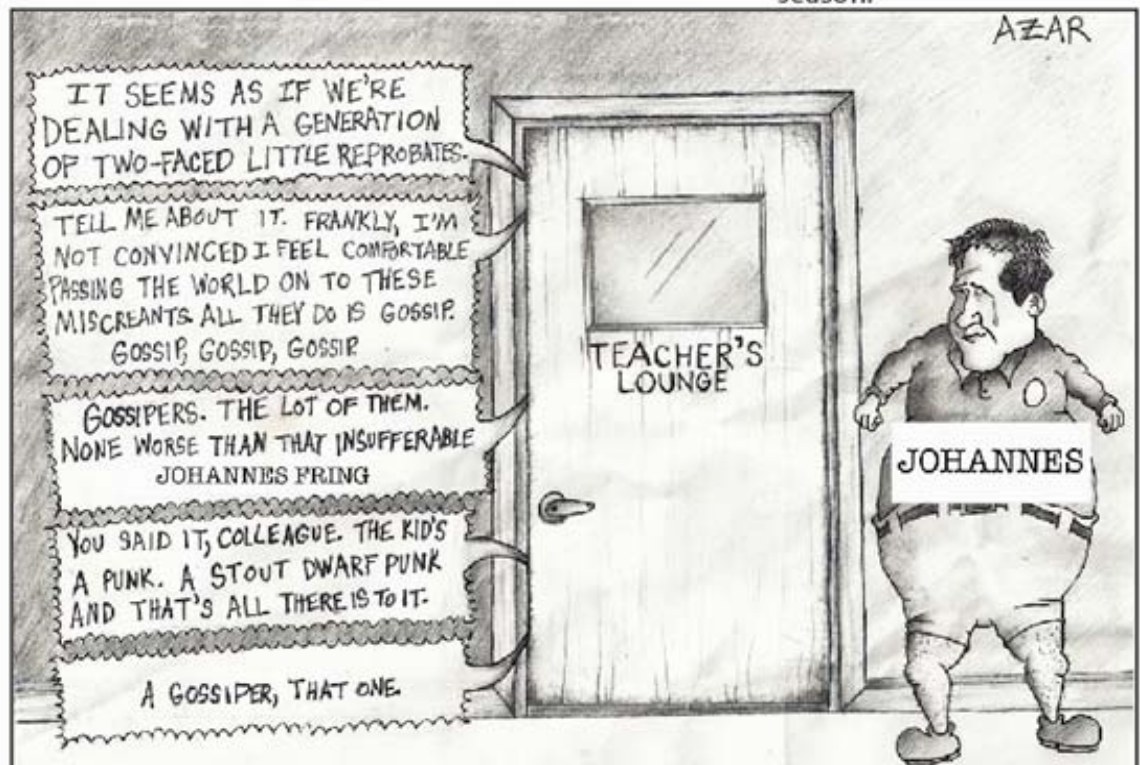 AZAR
IT SEEMS AS IF WE'RE
DEALING WITH A GENERATION
OF TWO-FACED LITTLE REPROBATES.
TELL ME ABOUT IT. FRANKLY, I'M
NOT CONVINCED I FEEL COMFORTABLE
PASSING THE WORLD ON TO THESE
MISCREANTS. ALL THEY DO IS GOSSIP.
GOSSIP, GOSSIP, GOSSIP.
GOSSIPERS. THE LOT OF THEM.
NONE WORSE THAN THAT INSUFFERABLE
JOHANNES FRING
YOU SAID IT, COLLEAGUE. THE KID'S
A PUNK. A STOUT DWARF PUNK
AND THAT'S ALL THERE IS TO IT.
A GOSSIPER, THAT ONE.
TEACHER'S
LOUNGE
JOHANNES